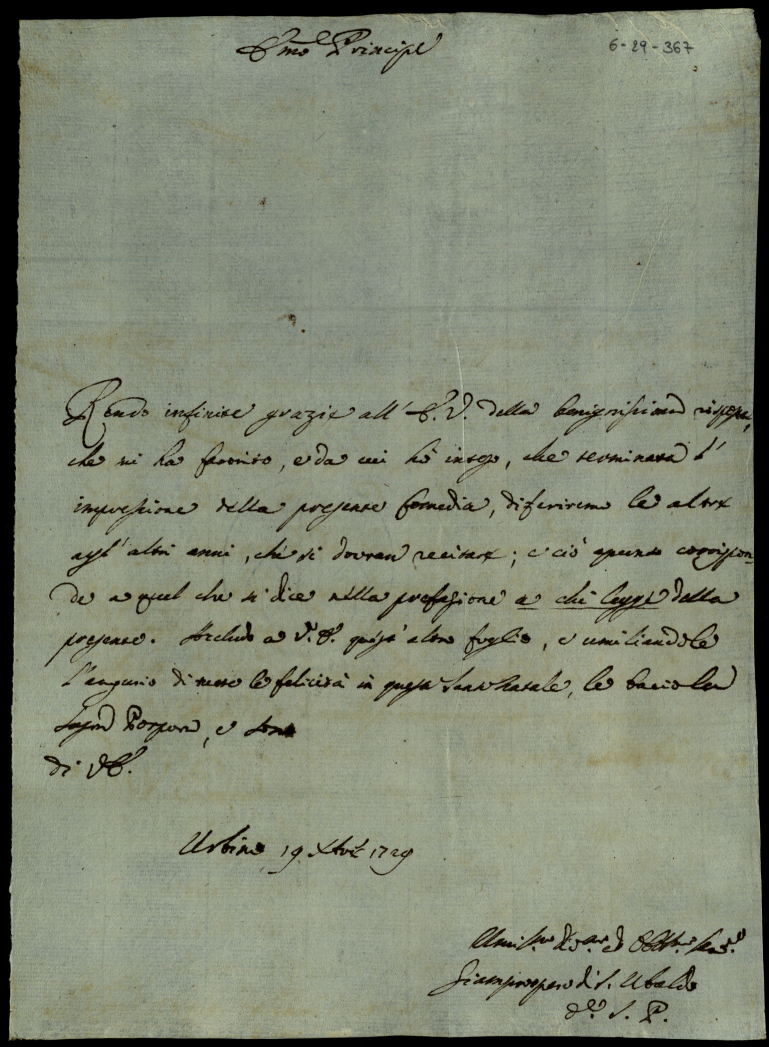 Em̃o Principe
6-29-367
Rendo infinite grazie all' E. V. della benignissima risposta,
che mi ha favorito, e da cui hò inteso, che terminata l'
impressione della presente Comedia, diferiremo le altre
agl' altri anni, che si dovran recitare; e ciò apunto corrispon-
de a quel che si dice nella prefazione a chi legge della
presente. Accludo a V. E. quest' altro foglio, e umiliandole
l'augurio di tutte le felicità in questo Santo Natale, le bacio la
Sagra Porpora, e sono
di V. E.
Urbino 19 Xbre 1729
Umil.mo Div.mo ed Obb.mo Ser.e
Giamprospero di S. Ubaldo
d.e S. P.